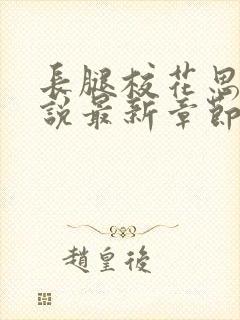 長腿校花思
說最新章節
趙皇後